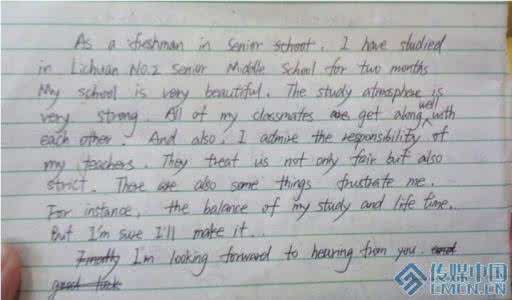 As a freshman in senior school. I have studied
in Lichuan NO.2 Senior Middle School for two months
My school is very beautiful. The study atmosphere is
very strong. All of my classmates are get along well with
each other. And also, I admire the responsibility of
my teachers. They treat us not only fair but also
strict. There are also some things frustrate me.
For instance, the balance of my study and life time..
But I'm sure I'll make it...
Finally I'm looking forward to hearing from you. and
good luck
传媒中国
CMCN.CN